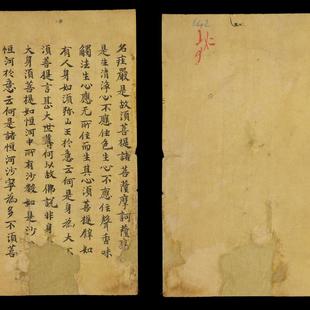 名疰嚴是故須菩提諸菩薩摩訶薩
是生清淨心不應住色生心不應住聲香味
觸法生心應无所住而生其心須菩提譬如
有人身如須弥山王於意云何是身為大
須菩提言甚大世尊何以故佛說非身
大身須菩提如恒河中所有沙數如是沙
恒河於意云何是諸恒河沙寧為多不須菩